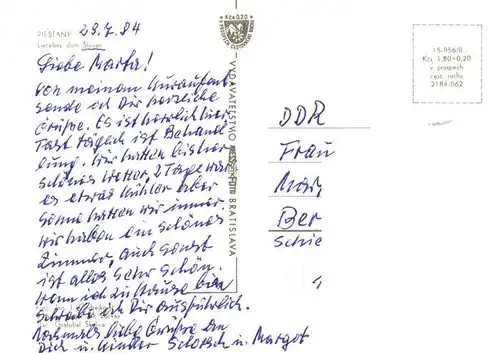 PIEŠŤANY 29.7.84
Liečebný dom Slovan
Liebe Marta!
Von meinem Kuraufent-
sende ich Dir herzliche
Grüße. Es ist herrlich hier
Fast täglich ist Behand
lung. Wir hatten bisher
schönes Wetter, 2 Tage war
es etwas kühler aber
Sonne hatten wir immer.
Wir haben ein schönes
Zimmer, auch sonst
ist alles sehr schön.
Wenn ich zu Hause bin
schreibe ich Dir ausführlich.
Nochmals liebe Grüße an
Dich u. Günter Schorsch u. Margot
Kčs 0,20
VYDAVATEĽSTVO
BRATISLAVA
DDR
Frau
Mar
Ber
Schle
15-956/II
Kčs 1,80+0,20
v prospech
cest. ruchu
2184-062